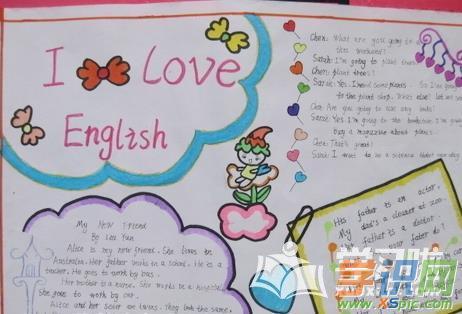 I Love
English
Chen: What are you going to do
this weekend?
Sarah: I'm going to plant trees
Chen: plant trees?
Sarah: Yes. I need some plants. So I'm going
to the plant shop. What else?
Chen: Are you going to
Sarah: Yes, I'm going to the bookstore. I'm going
buy a magazine about plants.
Chen: That's great!
Sarah: I want to be a science teacher one day
My New Friend
By Liu Yun
Alice is my new friend. She lives in
Australia. Her father works in a school. He is a
teacher. He goes to work by bus.
Her mother is a nurse. She works in a hospital
She goes to work by car.
Alice and her sister are twins. They look the same
His father is an actor.
My dad's a cleaner at zoo.
My father is a doctor.
your father do?
学识网
www.XSpic.com